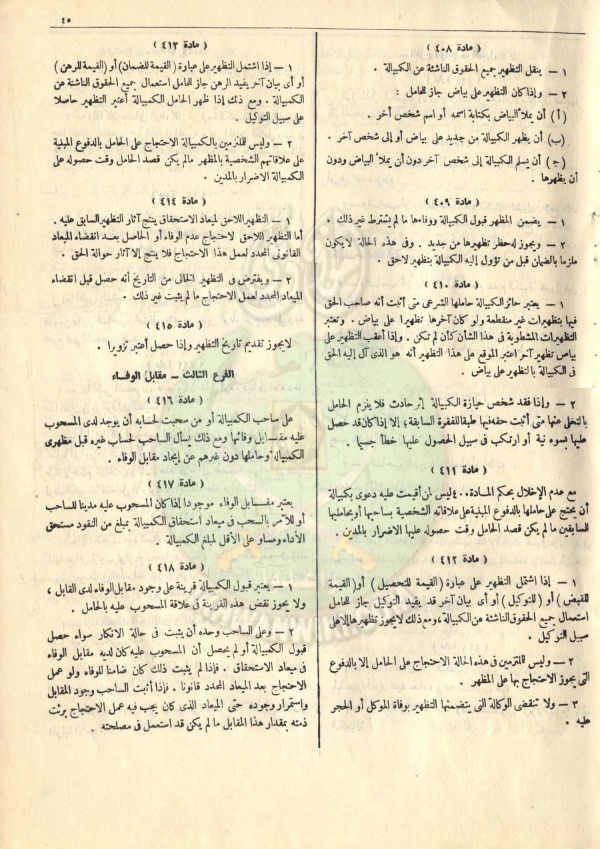 ٤٥
( مادة ٤٠٨ )
١ — ينقل التظهير جميع الحقوق الناشئة عن الكمبيالة .
٢ — وإذا كان التظهير على بياض جاز للحامل :
( أ ) أن يملأ البياض بكتابة اسمه أو اسم شخص آخر .
(ب) أن يظهر الكمبيالة من جديد على بياض أو إلى شخص آخر .
(ج) أن يسلم الكمبيالة إلى شخص آخر دون أن يملأ البياض ودون
أن يظهرها .
( مادة ٤٠٩ )
١ — يضمن المظهر قبول الكمبيالة ووفاءها ما لم يشترط غير ذلك .
٢ — ويجوز له حظر تظهيرها من جديد . وفى هذه الحالة لا يكون
ملزما بالضمان قبل من تؤول إليه الكمبيالة بتظهير لاحق .
( مادة ٤١٠ )
١ — يعتبر حائز الكمبيالة حاملها الشرعى متى أثبت أنه صاحب الحق
فيها بتظهيرات غير منقطعة ولو كان آخرها تظهيرا على بياض . وتعتبر
التظهيرات المشطوبة فى هذا الشأن كأن لم تكن . وإذا أعقب التظهير على
بياض تظهير آخر اعتبر الموقع على هذا التظهير أنه هو الذى آل إليه الحق
فى الكمبيالة بالتظهير على بياض .
٢ — وإذا فقد شخص حيازة الكمبيالة إثر حادث فلا يلزم الحامل
بالتخلى عنها متى أثبت حقه فيها طبقا للفقرة السابقة ، إلا إذا كان قد حصل
عليها بسوء نية أو ارتكب فى سبيل الحصول عليها خطأ جسيما .
( مادة ٤١١ )
مع عدم الإخلال بحكم المادة ٤٠٠ ليس لمن أقيمت عليه دعوى بكمبيالة
أن يحتج على حاملها بالدفوع المبنية على علاقاته الشخصية بساحبها أو بحامليها
السابقين ما لم يكن قصد الحامل وقت حصوله عليها الاضرار بالمدين .
( مادة ٤١٢ )
١ — إذا اشتمل التظهير على عبارة ( القيمة للتحصيل ) أو ( القيمة
للقبض ) أو ( للتوكيل ) أو أى بيان آخر قد يفيد التوكيل جاز للحامل
استعمال جميع الحقوق الناشئة عن الكمبيالة ، ومع ذلك لا يجوز تظهيرها إلا على
سبيل التوكيل .
٢ — وليس للملتزمين فى هذه الحالة الاحتجاج على الحامل إلا بالدفوع
التى يجوز الاحتجاج بها على المظهر .
٣ — ولا تنقضى الوكالة التى يتضمنها التظهير بوفاة الموكل أو الحجر
عليه .
( مادة ٤١٣ )
١ — إذا اشتمل التظهير على عبارة ( القيمة للضمان ) أو ( القيمة للرهن )
أو أى بيان آخر يفيد الرهن جاز للحامل استعمال جميع الحقوق الناشئة عن
الكمبيالة . ومع ذلك إذا ظهر الحامل الكمبيالة أعتبر التظهير حاصلا
على سبيل التوكيل .
٢ — وليس للملتزمين بالكمبيالة الاحتجاج على الحامل بالدفوع المبنية
على علاقاتهم الشخصية بالمظهر ما لم يكن قصد الحامل وقت حصوله على
الكمبيالة الاضرار بالمدين .
( مادة ٤١٤ )
١ — التظهير اللاحق لميعاد الاستحقاق ينتج آثار التظهير السابق عليه .
أما التظهير اللاحق لاحتجاج عدم الوفاء أو الحاصل بعد انقضاء الميعاد
القانونى المحدد لعمل هذا الاحتجاج فلا ينتج إلا آثار حوالة الحق .
٢ — ويفترض فى التظهير الخالى من التاريخ أنه حصل قبل انقضاء
الميعاد المحدد لعمل الاحتجاج ما لم يثبت غير ذلك .
( مادة ٤١٥ )
لا يجوز تقديم تاريخ التظهير وإذا حصل أعتبر تزويرا .
الفرع الثالث — مقابل الوفاء
( مادة ٤١٦ )
على ساحب الكمبيالة أو من سحبت لحسابه أن يوجد لدى المسحوب
عليه مقابل وفائها ومع ذلك يسأل الساحب لحساب غيره قبل مظهرى
الكمبيالة وحاملها دون غيرهم عن إيجاد مقابل الوفاء .
( مادة ٤١٧ )
يعتبر مقابل الوفاء موجودا إذا كان المسحوب عليه مدينا للساحب
أو للآمر بالسحب فى ميعاد استحقاق الكمبيالة بمبلغ من النقود مستحق
الأداء ومساو على الأقل لمبلغ الكمبيالة .
( مادة ٤١٨ )
١ — يعتبر قبول الكمبيالة قرينة على وجود مقابل الوفاء لدى القابل ،
ولا يجوز نقض هذه القرينة فى علاقة المسحوب عليه بالحامل .
٢ — وعلى الساحب وحده أن يثبت فى حالة الانكار سواء حصل
قبول الكمبيالة أو لم يحصل أن المسحوب عليه كان لديه مقابل الوفاء
فى ميعاد الاستحقاق . فإذا لم يثبت ذلك كان ضامنا للوفاء ولو عمل
الاحتجاج بعد الميعاد المحدد قانونا . فإذا أثبت الساحب وجود المقابل
واستمرار وجوده حتى الميعاد الذى كان يجب فيه عمل الاحتجاج برئت
ذمته بمقدار هذا المقابل ما لم يكن قد استعمل فى مصلحته .